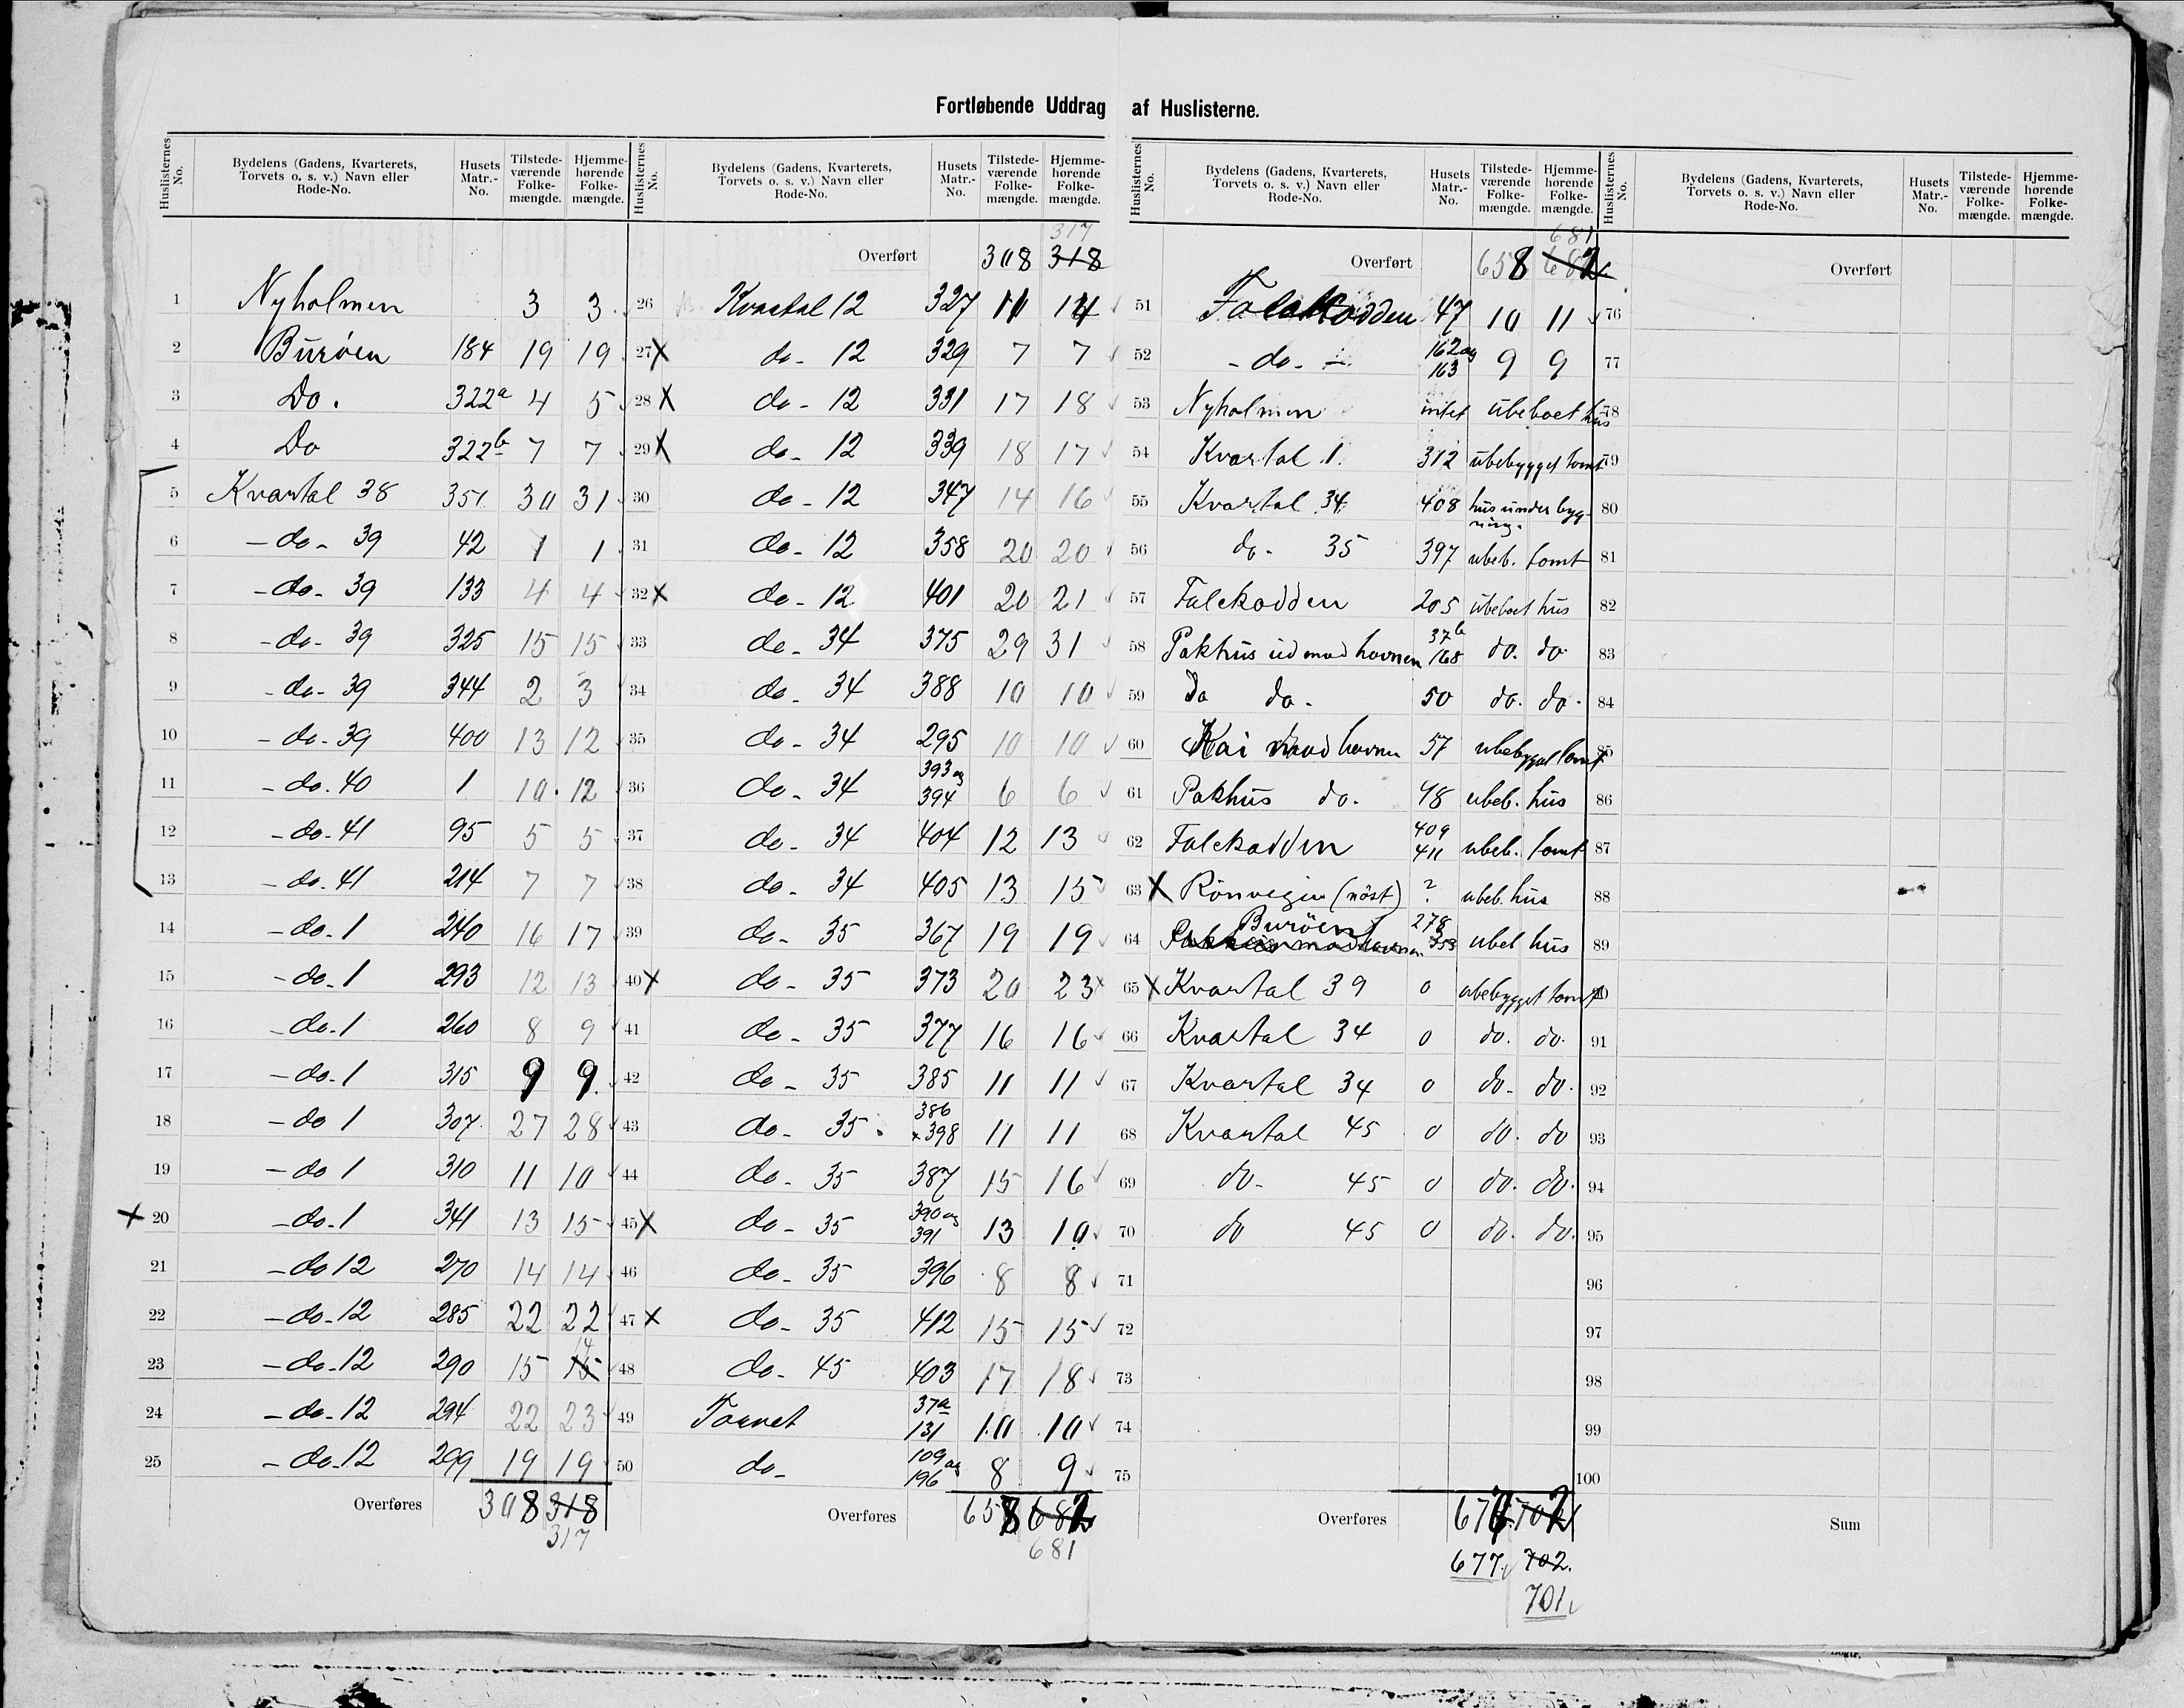 Fortløbende Uddrag af Huslisterne.
Huslisternes No. Bydelens (Gadens, Kvarterets, Torvets o. s. v.) Navn eller Rode-No. Husets Matr.-No. Tilstedeværende Folkemængde. Hjemmehørende Folkemængde.
1 Nyholmen 3 3
2 Burøen 184 19 19
3 Do. 322a 4 5
4 Do 322b 7 7
5 Kvartal 38 351 30 31
6 - do - 39 42 1 1
7 - do - 39 133 4 4
8 - do - 39 325 15 15
9 - do - 39 344 2 3
10 - do - 39 400 13 12
11 - do. 40 1 10 12
12 - do. 41 95 5 5
13 - do. 41 214 7 7
14 - do. 1 240 16 17
15 - do. 1 293 12 13
16 - do. 1 260 8 9
17 - do. 1 315 9 9
18 - do 1 307 27 28
19 - do 1 310 11 10
X 20 - do. 1 341 13 15
21 - do 12 270 14 14
22 - do. 12 285 22 22
23 - do. 12 290 15 15 14
24 - do. 12 294 22 23
25 - do. 12 299 19 19
Overføres 308 318
317
Huslisternes No. Bydelens (Gadens, Kvarterets, Torvets o. s. v.) Navn eller Rode-No. Husets Matr.-No. Tilstedeværende Folkemængde. Hjemmehørende Folkemængde.
317
Overført 308 318
26 Kvartal 12 327 11 14
27 X do - 12 329 7 7
28 X do - 12 331 17 18
29 X do - 12 339 18 17
30 do - 12 347 14 16
31 do - 12 358 20 20
32 X do - 12 401 20 21
33 do - 34 375 29 31
34 do - 34 388 10 10
35 do - 34 295 10 10
36 do - 34 393 og 394 6 6
37 do - 34 404 12 13
38 do - 34 405 13 15
39 do - 35 367 19 19
40 X do - 35 373 20 23
41 do - 35 377 16 16
42 do - 35 385 11 11
43 do - 35 386 x 398 11 11
44 do - 35 387 15 16
45 X do - 35 390 og 391 13 10
46 do - 35 396 8 8
47 X do - 35 412 15 15
48 do - 45 403 17 18
49 Torvet 37a 131 10 10
50 do - 109 og 196 8 9
Overføres 658 682
681
Huslisternes No. Bydelens (Gadens, Kvarterets, Torvets o. s. v.) Navn eller Rode-No. Husets Matr.-No. Tilstedeværende Folkemængde. Hjemmehørende Folkemængde.
681
Overført 658 682
51 Falekodden 47 10 11
52 - do - 162 og 163 9 9
53 Nyholmen intet ubeboet hus
54 Kvartal 1 312 ubebygget tomt
55 Kvartal 34 408 hus under bygning.
56 do - 35 397 ubeb. tomt
57 Falekodden 205 ubeboet hus
58 Pakhus ud mod havnen 37b 168 do. do
59 Do do. 50 do. do.
60 Kai mod havnen 57 ubebygget tomt
61 Pakhus do. 48 ubeb. hus
62 Falekodden 409 411 ubeb. tomt
63 X Rønvegin (nøst) ? ubeb. hus
64 Burøen 278 ubeb hus
65 X Kvartal 39 0 ubebygget tomt
66 Kvartal 34 0 do. do.
67 Kvartal 34 0 do - do.
68 Kvartal 45 0 do. do
69 do - 45 0 do. do.
70 do 45 0 do. do.
71
72
73
74
75
Overføres 702
677 702.
701
Huslisternes No. Bydelens (Gadens, Kvarterets, Torvets o. s. v.) Navn eller Rode-No. Husets Matr.-No. Tilstedeværende Folkemængde. Hjemmehørende Folkemængde.
Overført
76
77
78
79
80
81
82
83
84
85
86
87
88
89
90
91
92
93
94
95
96
97
98
99
100
Sum